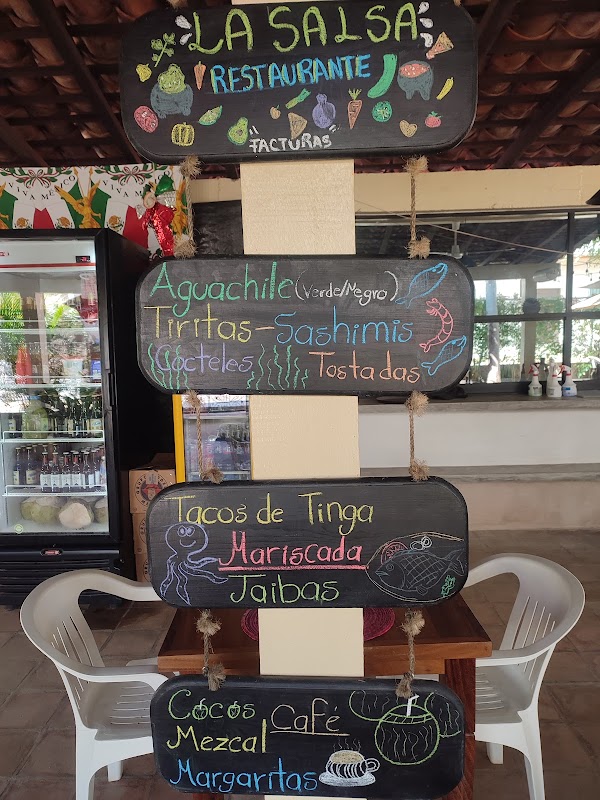 LA SALSA
RESTAURANTE
"FACTURAS"
VIVA MEXICO
Aguachile (Verde/Negro)
Tiritas - Sashimis
Cocteles Tostadas
Tacos de Tinga
Mariscada
Jaibas
Cocos Café
Mezcal
Margaritas